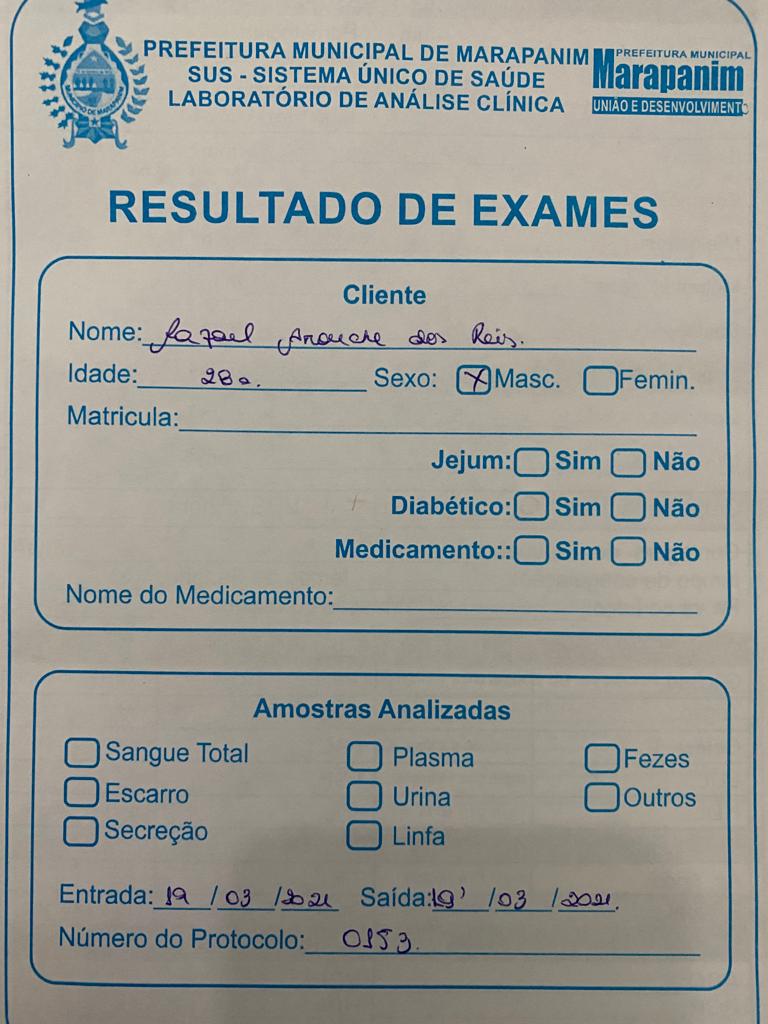 PREFEITURA MUNICIPAL DE MARAPANIM
SUS - SISTEMA ÚNICO DE SAÚDE
LABORATÓRIO DE ANÁLISE CLÍNICA
PREFEITURA MUNICIPAL
Marapanim
UNIÃO E DESENVOLVIMENTO
RESULTADO DE EXAMES
Cliente
Nome: dos Reis.
Idade: 28a. Sexo: X Masc. Femin.
Matricula:
Jejum: Sim Não
Diabético: Sim Não
Medicamento:: Sim Não
Nome do Medicamento:
Amostras Analizadas
Sangue Total Plasma Fezes
Escarro Urina Outros
Secreção Linfa
Entrada: 19 / 03 / 2021 Saída: 19 / 03 / 2021.
Número do Protocolo: 0153.